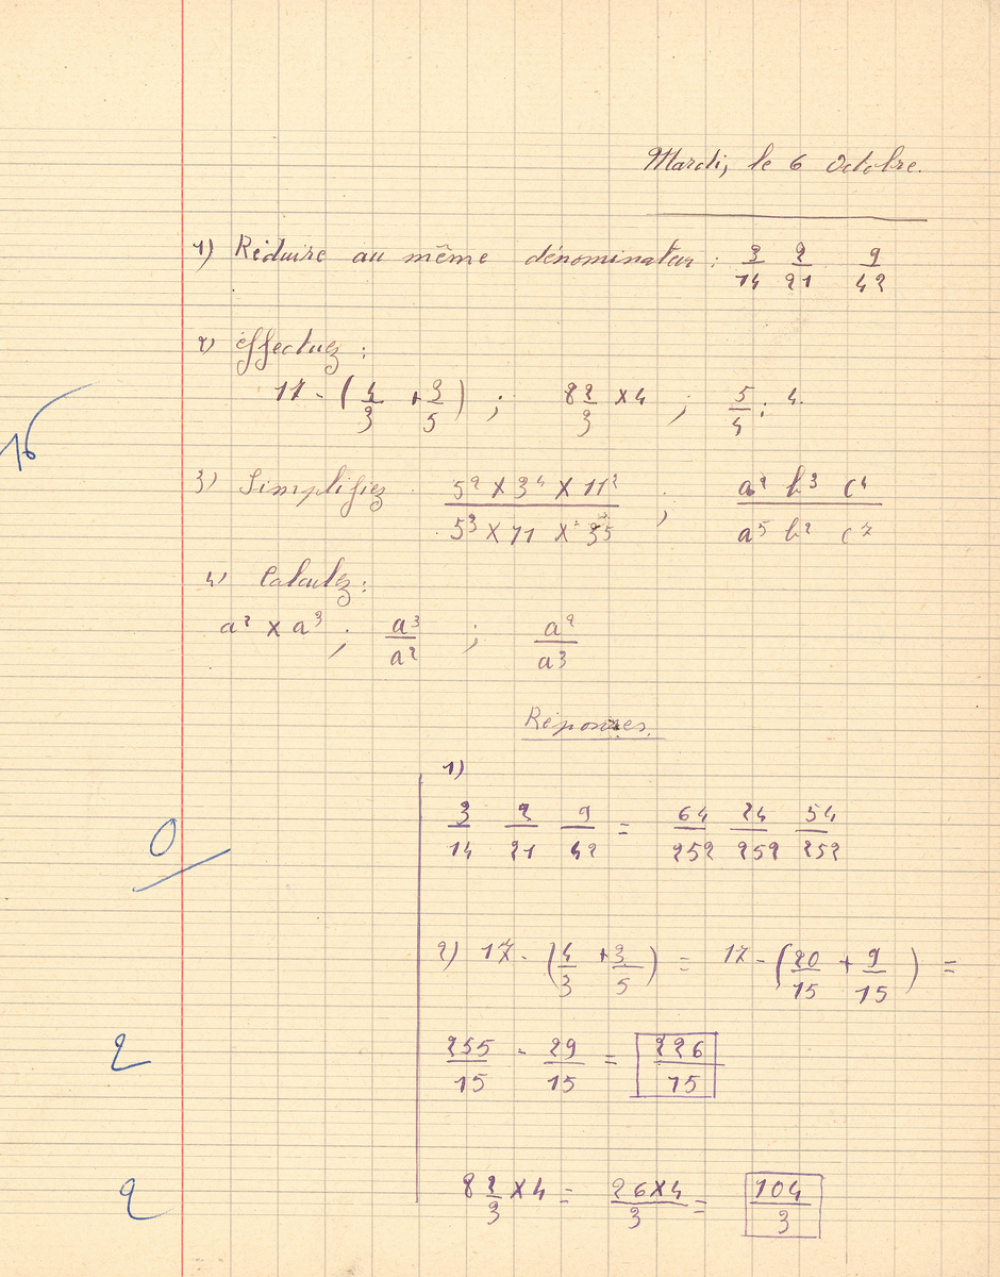 Mardi, le 6 Octobre.
1) Réduire au même dénominateur : 3/14 2/21 9/42
2) Effectuez :
17 - (4/3 + 3/5) ; 8 2/3 x 4 ; 5/4 : 4.
16
3) Simplifiez 5² x 3⁴ x 11² / 5³ x 11 x ; a² b³ c⁴ / a⁵ b² c⁷
4) Calculez :
a² x a³ ; a³/a² ; a²/a³
Réponses.
1)
0
3/14 2/21 9/42 = 64/252 24/252 54/252
2) 17 - (4/3 + 3/5) = 17 - (20/15 + 9/15) =
2
255/15 - 29/15 = 226/15
2
8 2/3 x 4 = 26x4/3 = 104/3